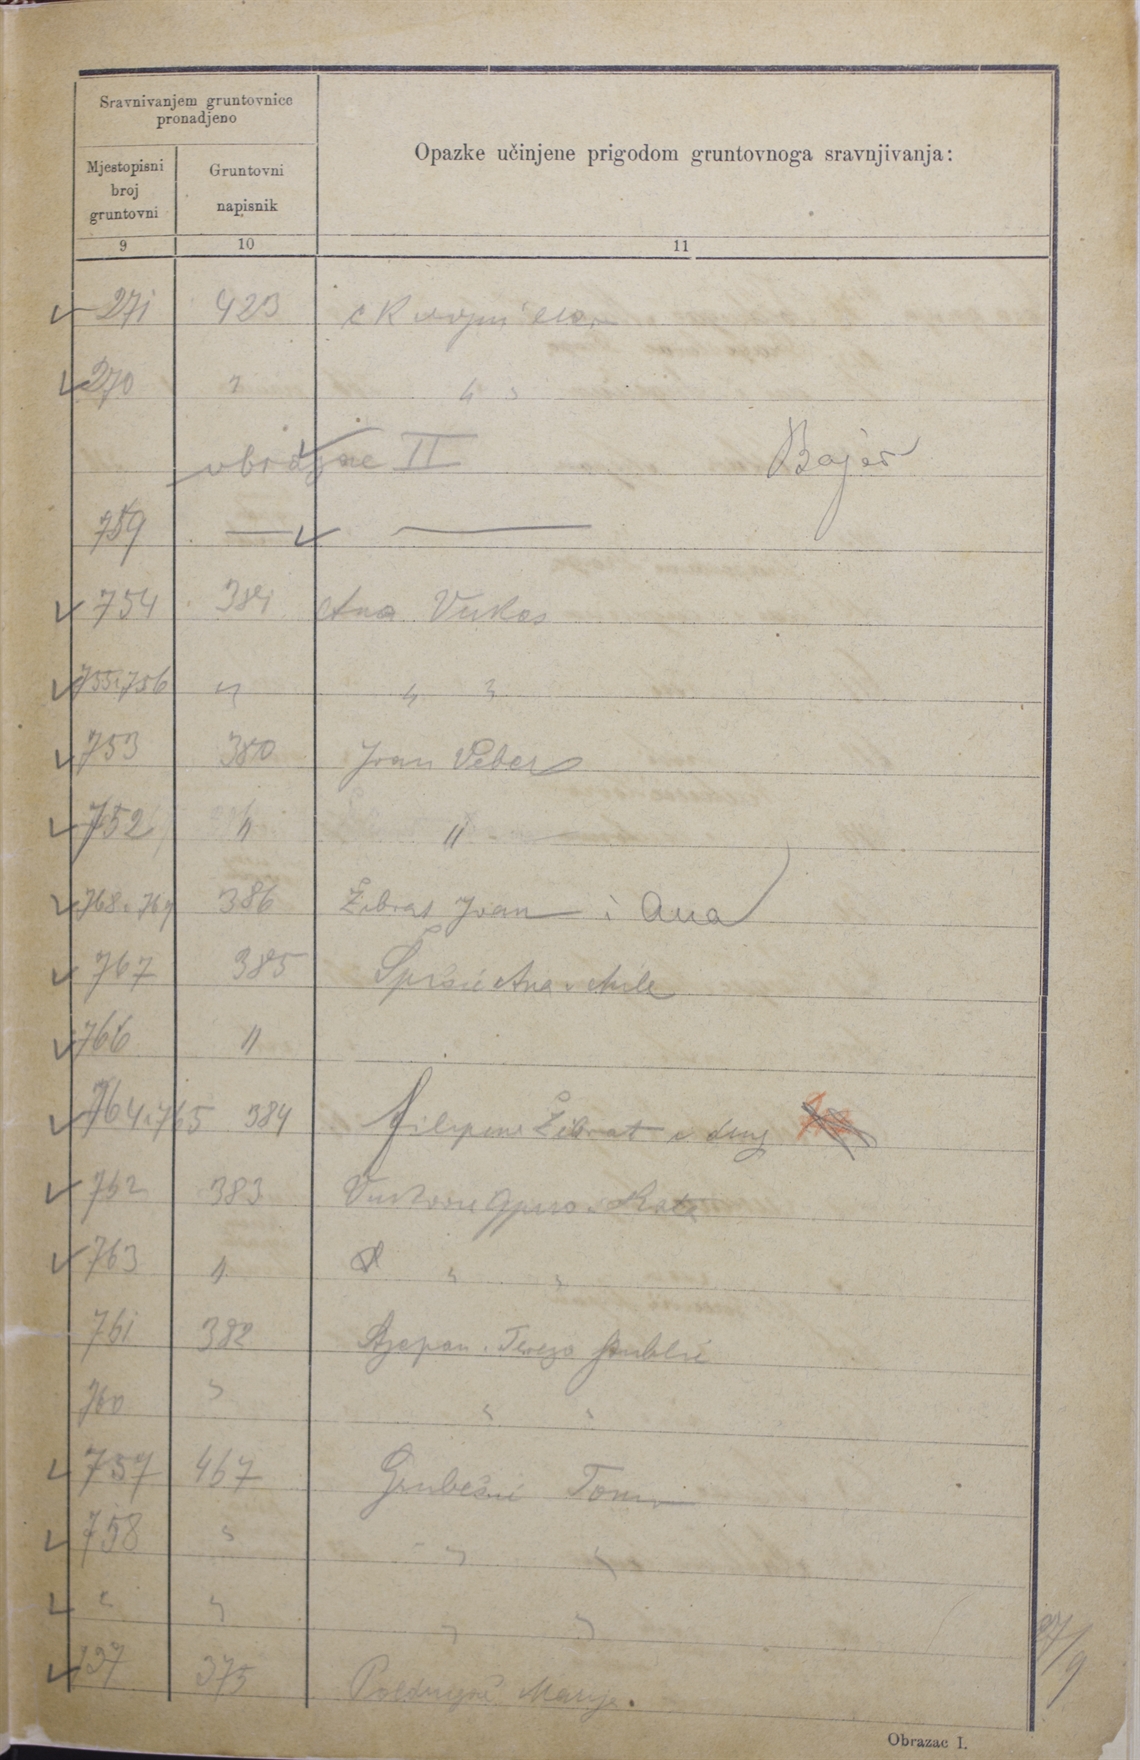 Sravnivanjem gruntovnice
pronadjeno
Opazke učinjene prigodom gruntovnoga sravnjivanja:
Mjestopisni
broj
gruntovni
Gruntovni
napisnik
9 10 11
271 423 c K
270 "  " "
II Bajer
759 — —
754 381 Ana Vukas
755 i 756 " " "
753 380 Ivan Veber
752 " "
768 i 769 386 Žibrat Ivan i Ana
767 385 Ana i Mile
766 "
764 i 765 384 Filipina Žibrat i drug
762 383
763 " " "
761 382 Stjepan i Tereza
760 " " "
757 467 Grubešić Tomo
758 " " "
" " " "
137 375 Marija.
27/9
Obrazac I.